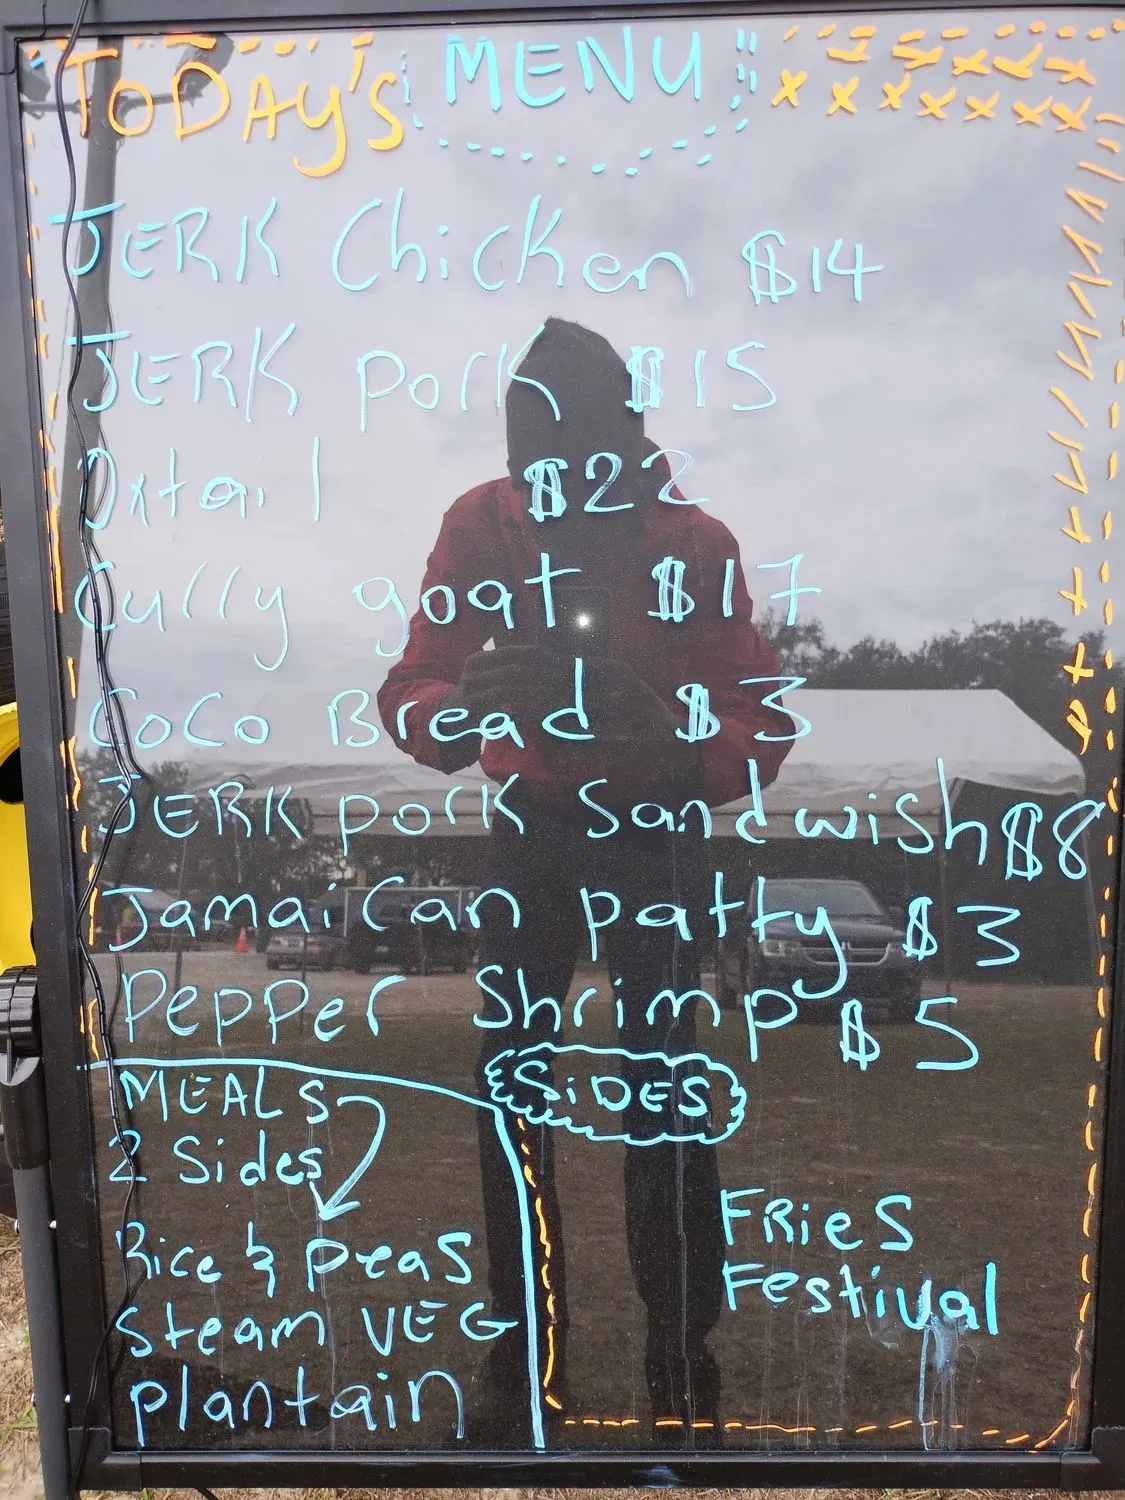 TODAY's MENU
JERK Chicken $14
JERK pork $15
Oxtail $22
Curry goat $17
CoCo Bread $3
JERK pork Sandwish $8
Jamaican patty $3
Pepper Shrimp $5
MEALS
2 Sides
Rice & peas
Steam VEG
plantain
SiDES
FRieS
Festival